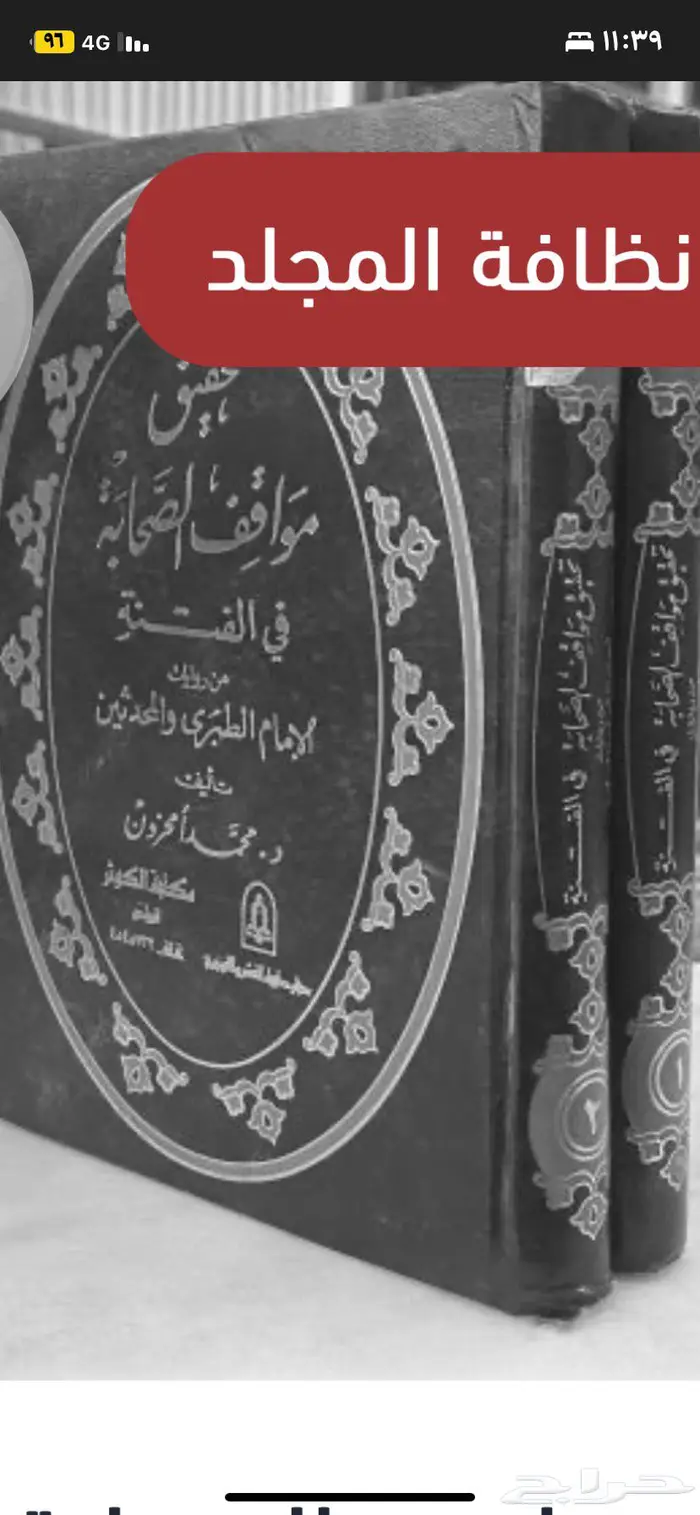 ١١:٣٩
4G
٩٦
نظافة المجلد
تحقيق
مَوَاقِفِ الصَّحَابَةِ
في الفتنة
من روايات
الإمام الطبري والمحدثين
تأليف
د. محمد أمحزون
مكتبة الكوثر
تحقيق مواقف الصحابة في الفتنة
٢
تحقيق مواقف الصحابة في الفتنة
١
حراج